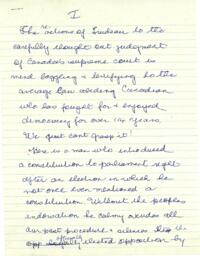 I
The reactions of Trudeau to the
carefully thought out judgment
of Canada's supreme court is
mind boggling & terrifying to the
average law abiding Canadian
who has fought for & enjoyed
democracy for over 114 years.
We just cant grasp it!
Here is a man who introduced
a constitution to parliament right
after an election in which he
not once even mentioned a
constitution. Without the peoples
endorsation he
our past procedure & silences the
elected opposition by